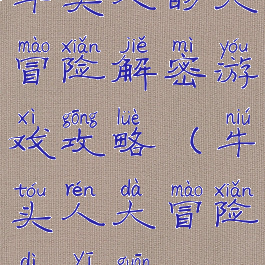 mào xiǎn jiě mì yóu
冒险解密游
xì gōng luè niú
戏攻略（牛
tóu rén dà mào xiǎn
头人大冒险
dì yī guān